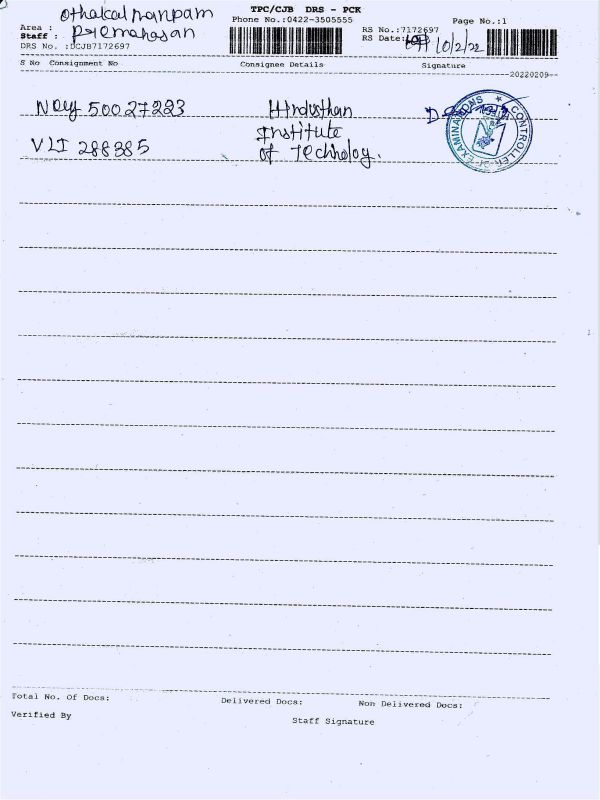 TPC/CJB DRS - PCK
Phone No.:0422-3505555
Page No.:1
Area :
Staff :
RS No.:7172697
RS Date: 10/2/22
DRS No. :DCJB7172697
S No Consignment No Consignee Details Signature
20220209
NDY 50027223 Hindusthan
Institute
VLI 288385 of Technology.
CONTROLLER OF EXAMINATIONS
Total No. Of Docs: Delivered Docs: Non Delivered Docs:
Verified By Staff Signature